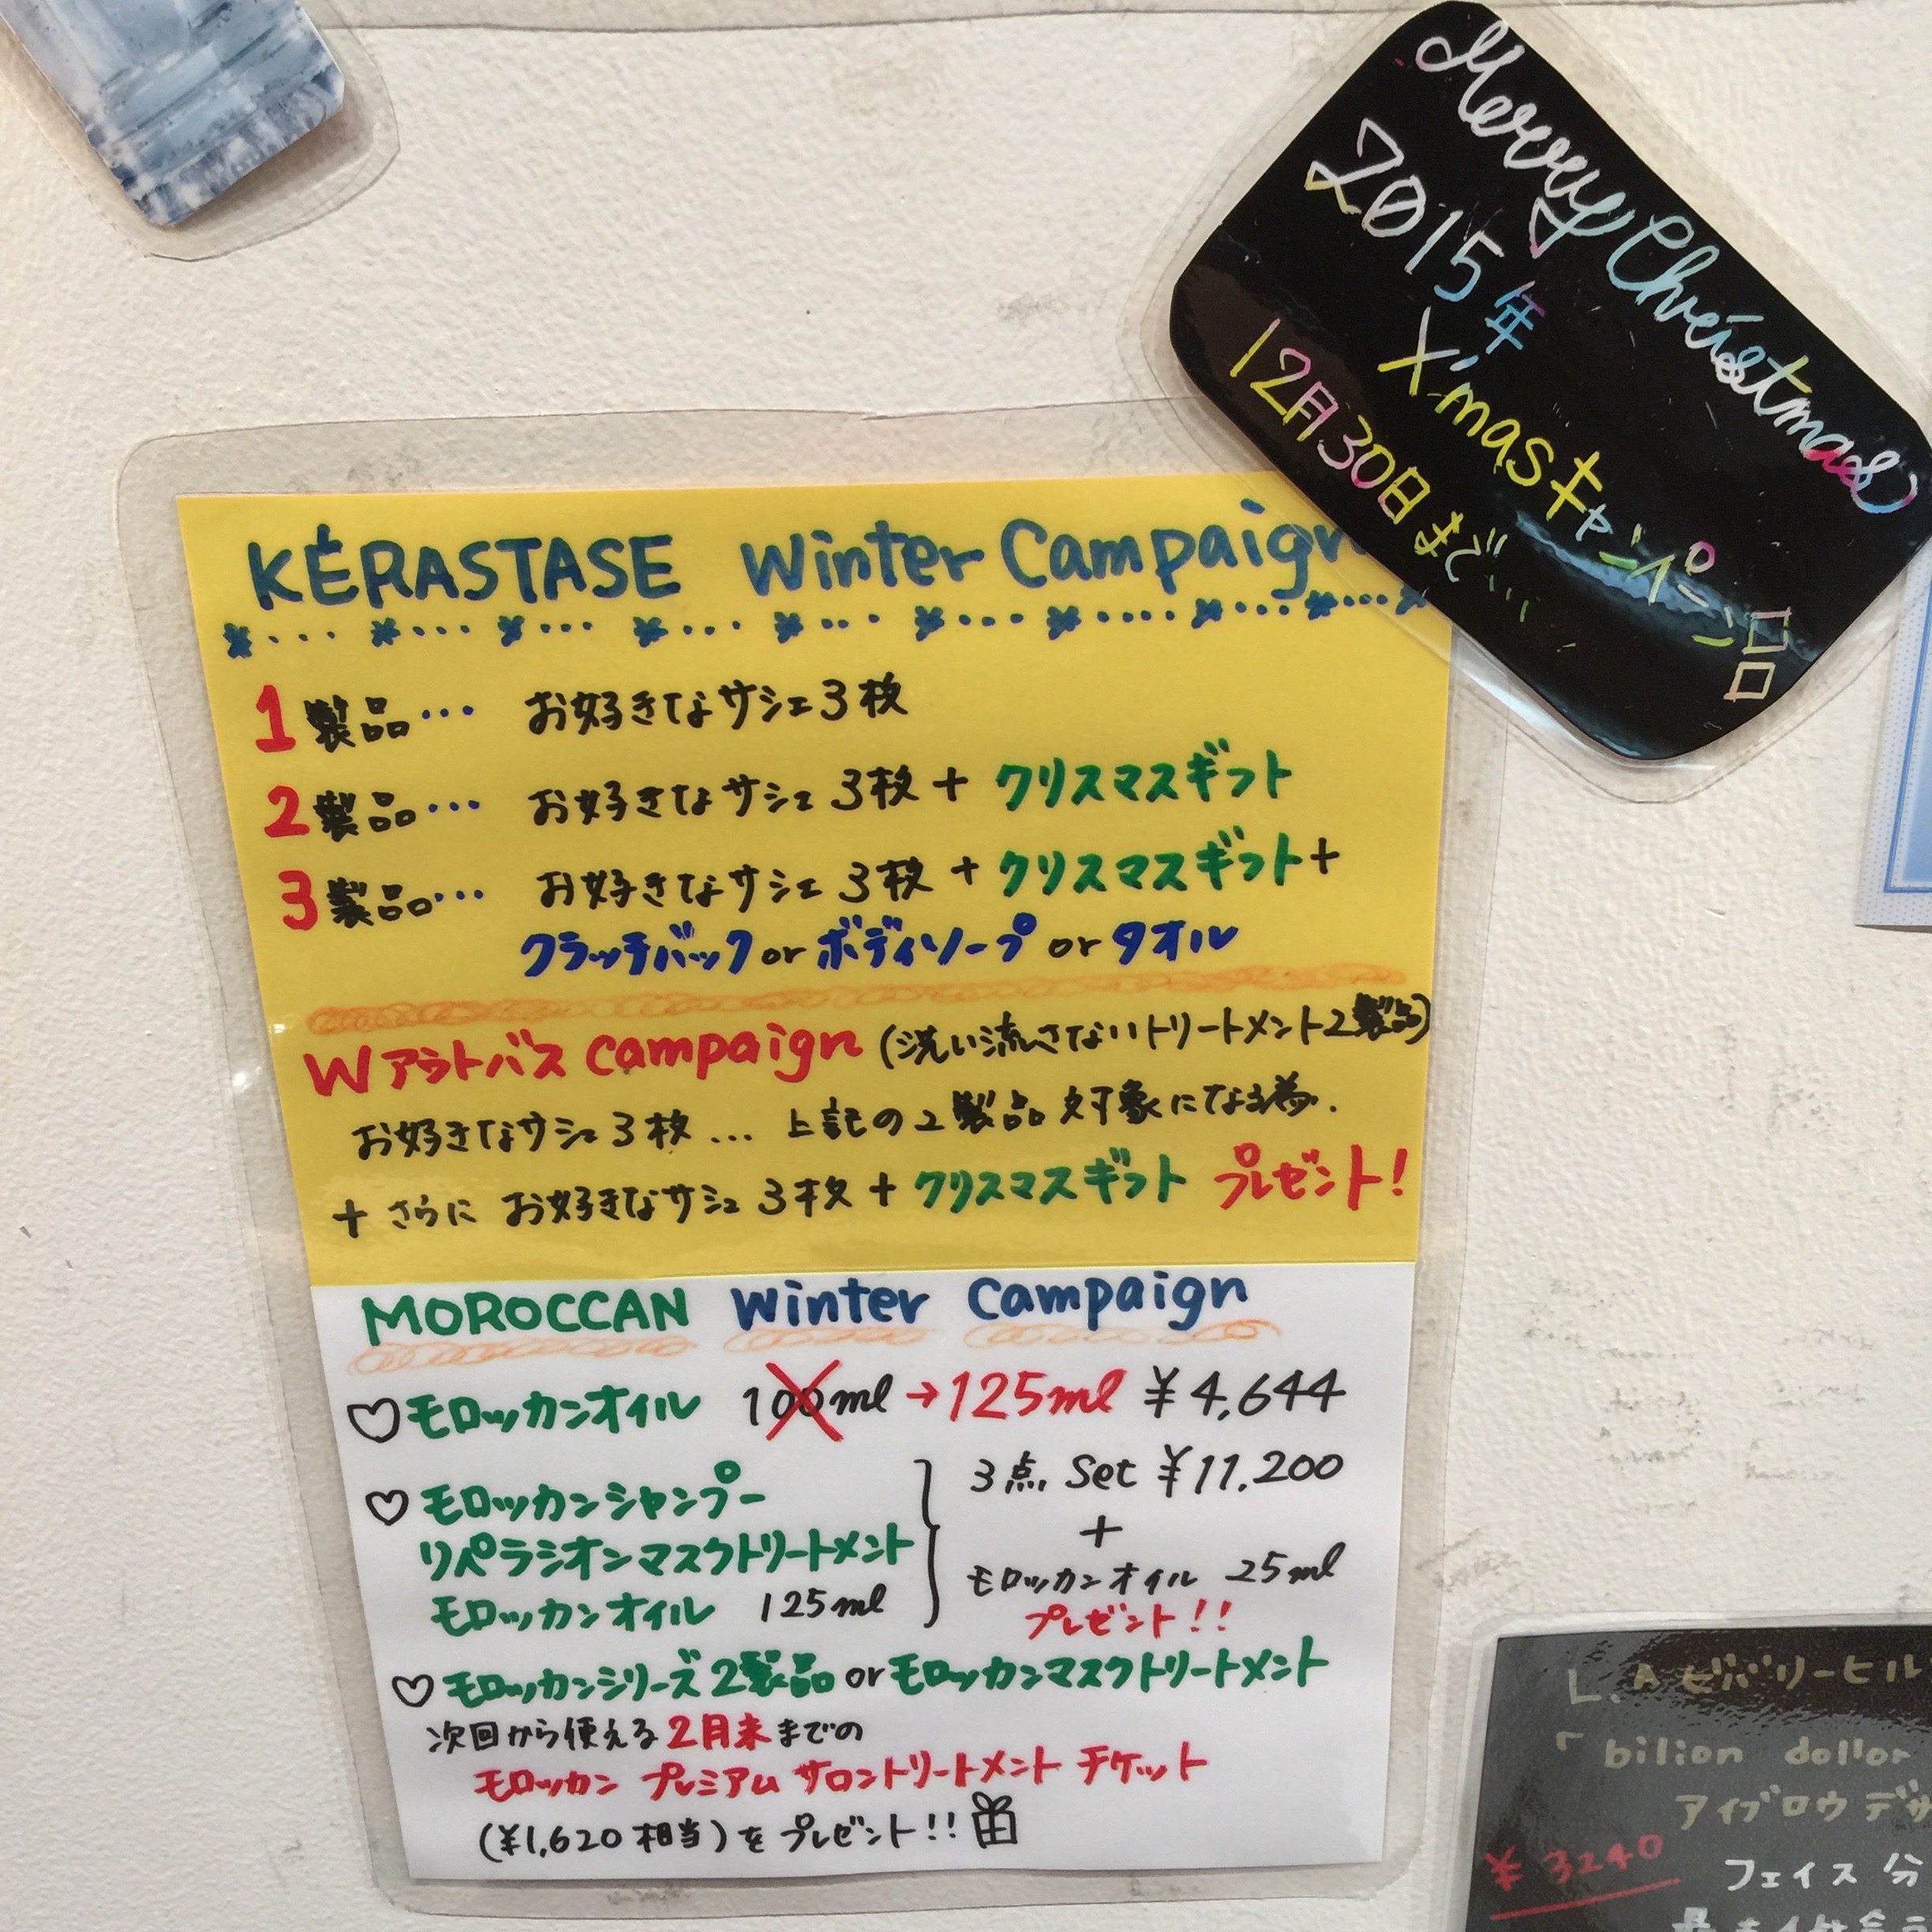 Merry Christmas
2015年
X'masキャンペーン品
12月30日まで…
KÉRASTASE Winter Campaign
1製品… お好きなサシェ3枚
2製品… お好きなサシェ3枚+クリスマスギフト
3製品… お好きなサシェ3枚+クリスマスギフト+
クラッチバックorボディソープorタオル
Wアウトバス campaign (洗い流さないトリートメント2製品)
お好きなサシェ3枚… 上記の2製品対象になる為.
+さらに お好きなサシェ3枚+クリスマスギフト プレゼント!
MOROCCAN Winter Campaign
♡モロッカンオイル 100ml→125ml ¥4,644
♡モロッカンシャンプー
リペラシオンマスクトリートメント
モロッカンオイル 125ml
3点 Set ¥11,200
+
モロッカンオイル 25ml
プレゼント!!
♡モロッカンシリーズ2製品orモロッカンマスクトリートメント
次回から使える2月末までの
モロッカン プレミアム サロントリートメント チケット
(¥1,620相当)をプレゼント!!
L.Aビバリーヒル
「bilion dollor
アイブロウデザ
¥3240
フェイス分